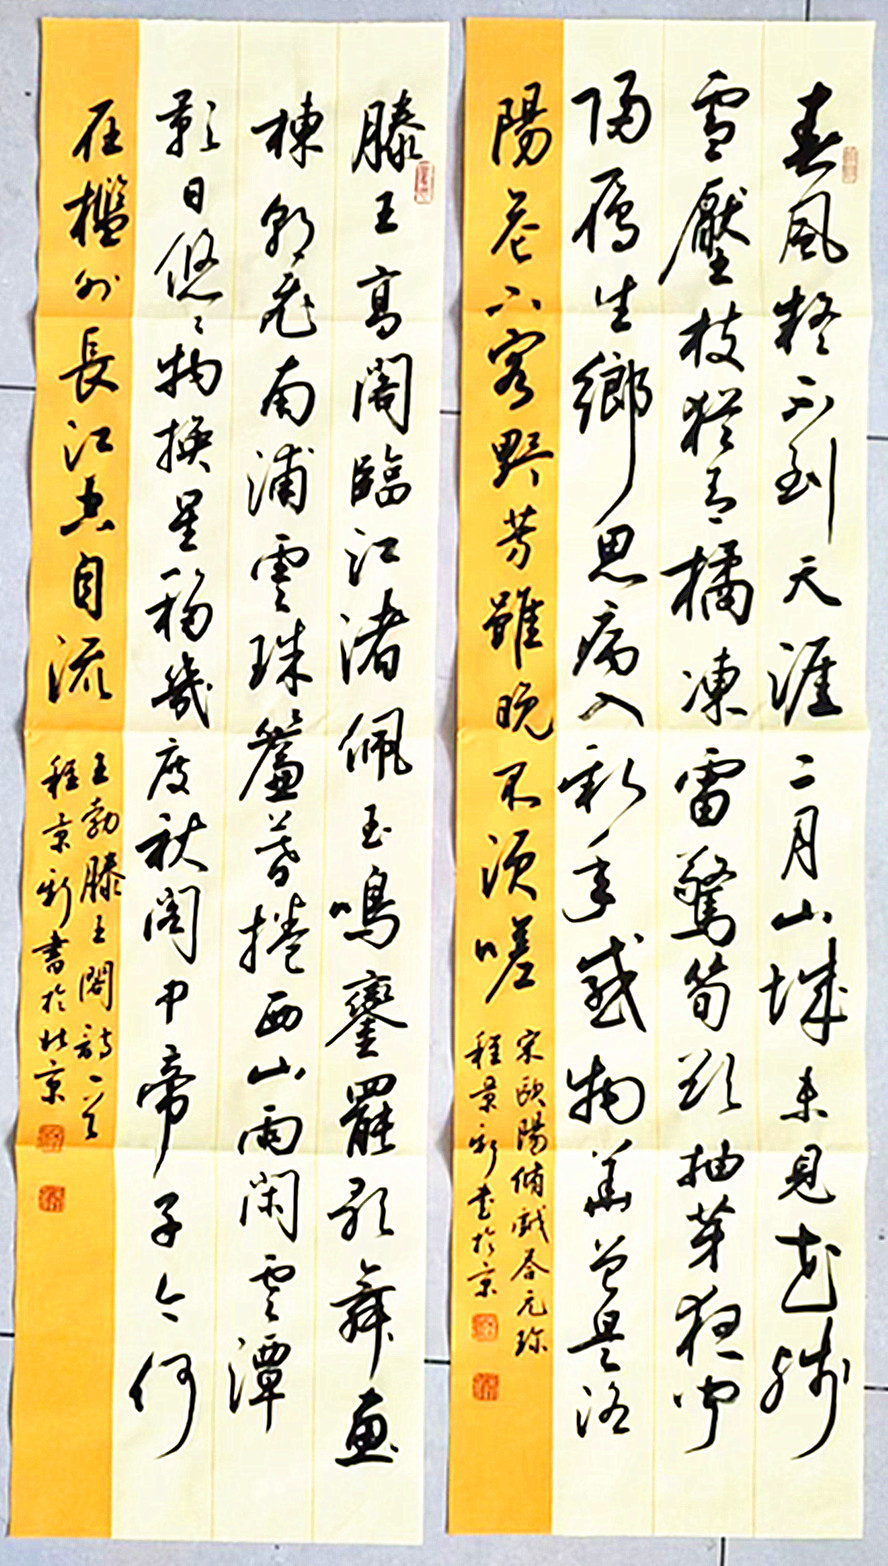 春風疑不到天涯二月山城未見花殘
雪壓枝猶有橘凍雷驚筍欲抽芽夜聞
歸雁生鄉思病入新年感物華曾是洛
陽花下客野芳雖晚不須嗟
宋歐陽脩戲答元珍
程景新書於京
滕王高閣臨江渚佩玉鳴鑾罷歌舞畫
棟朝飛南浦雲珠簾暮捲西山雨閑雲潭
影日悠悠物換星移幾度秋閣中帝子今何
在檻外長江空自流
王勃滕王閣詩一首
程景新書於北京